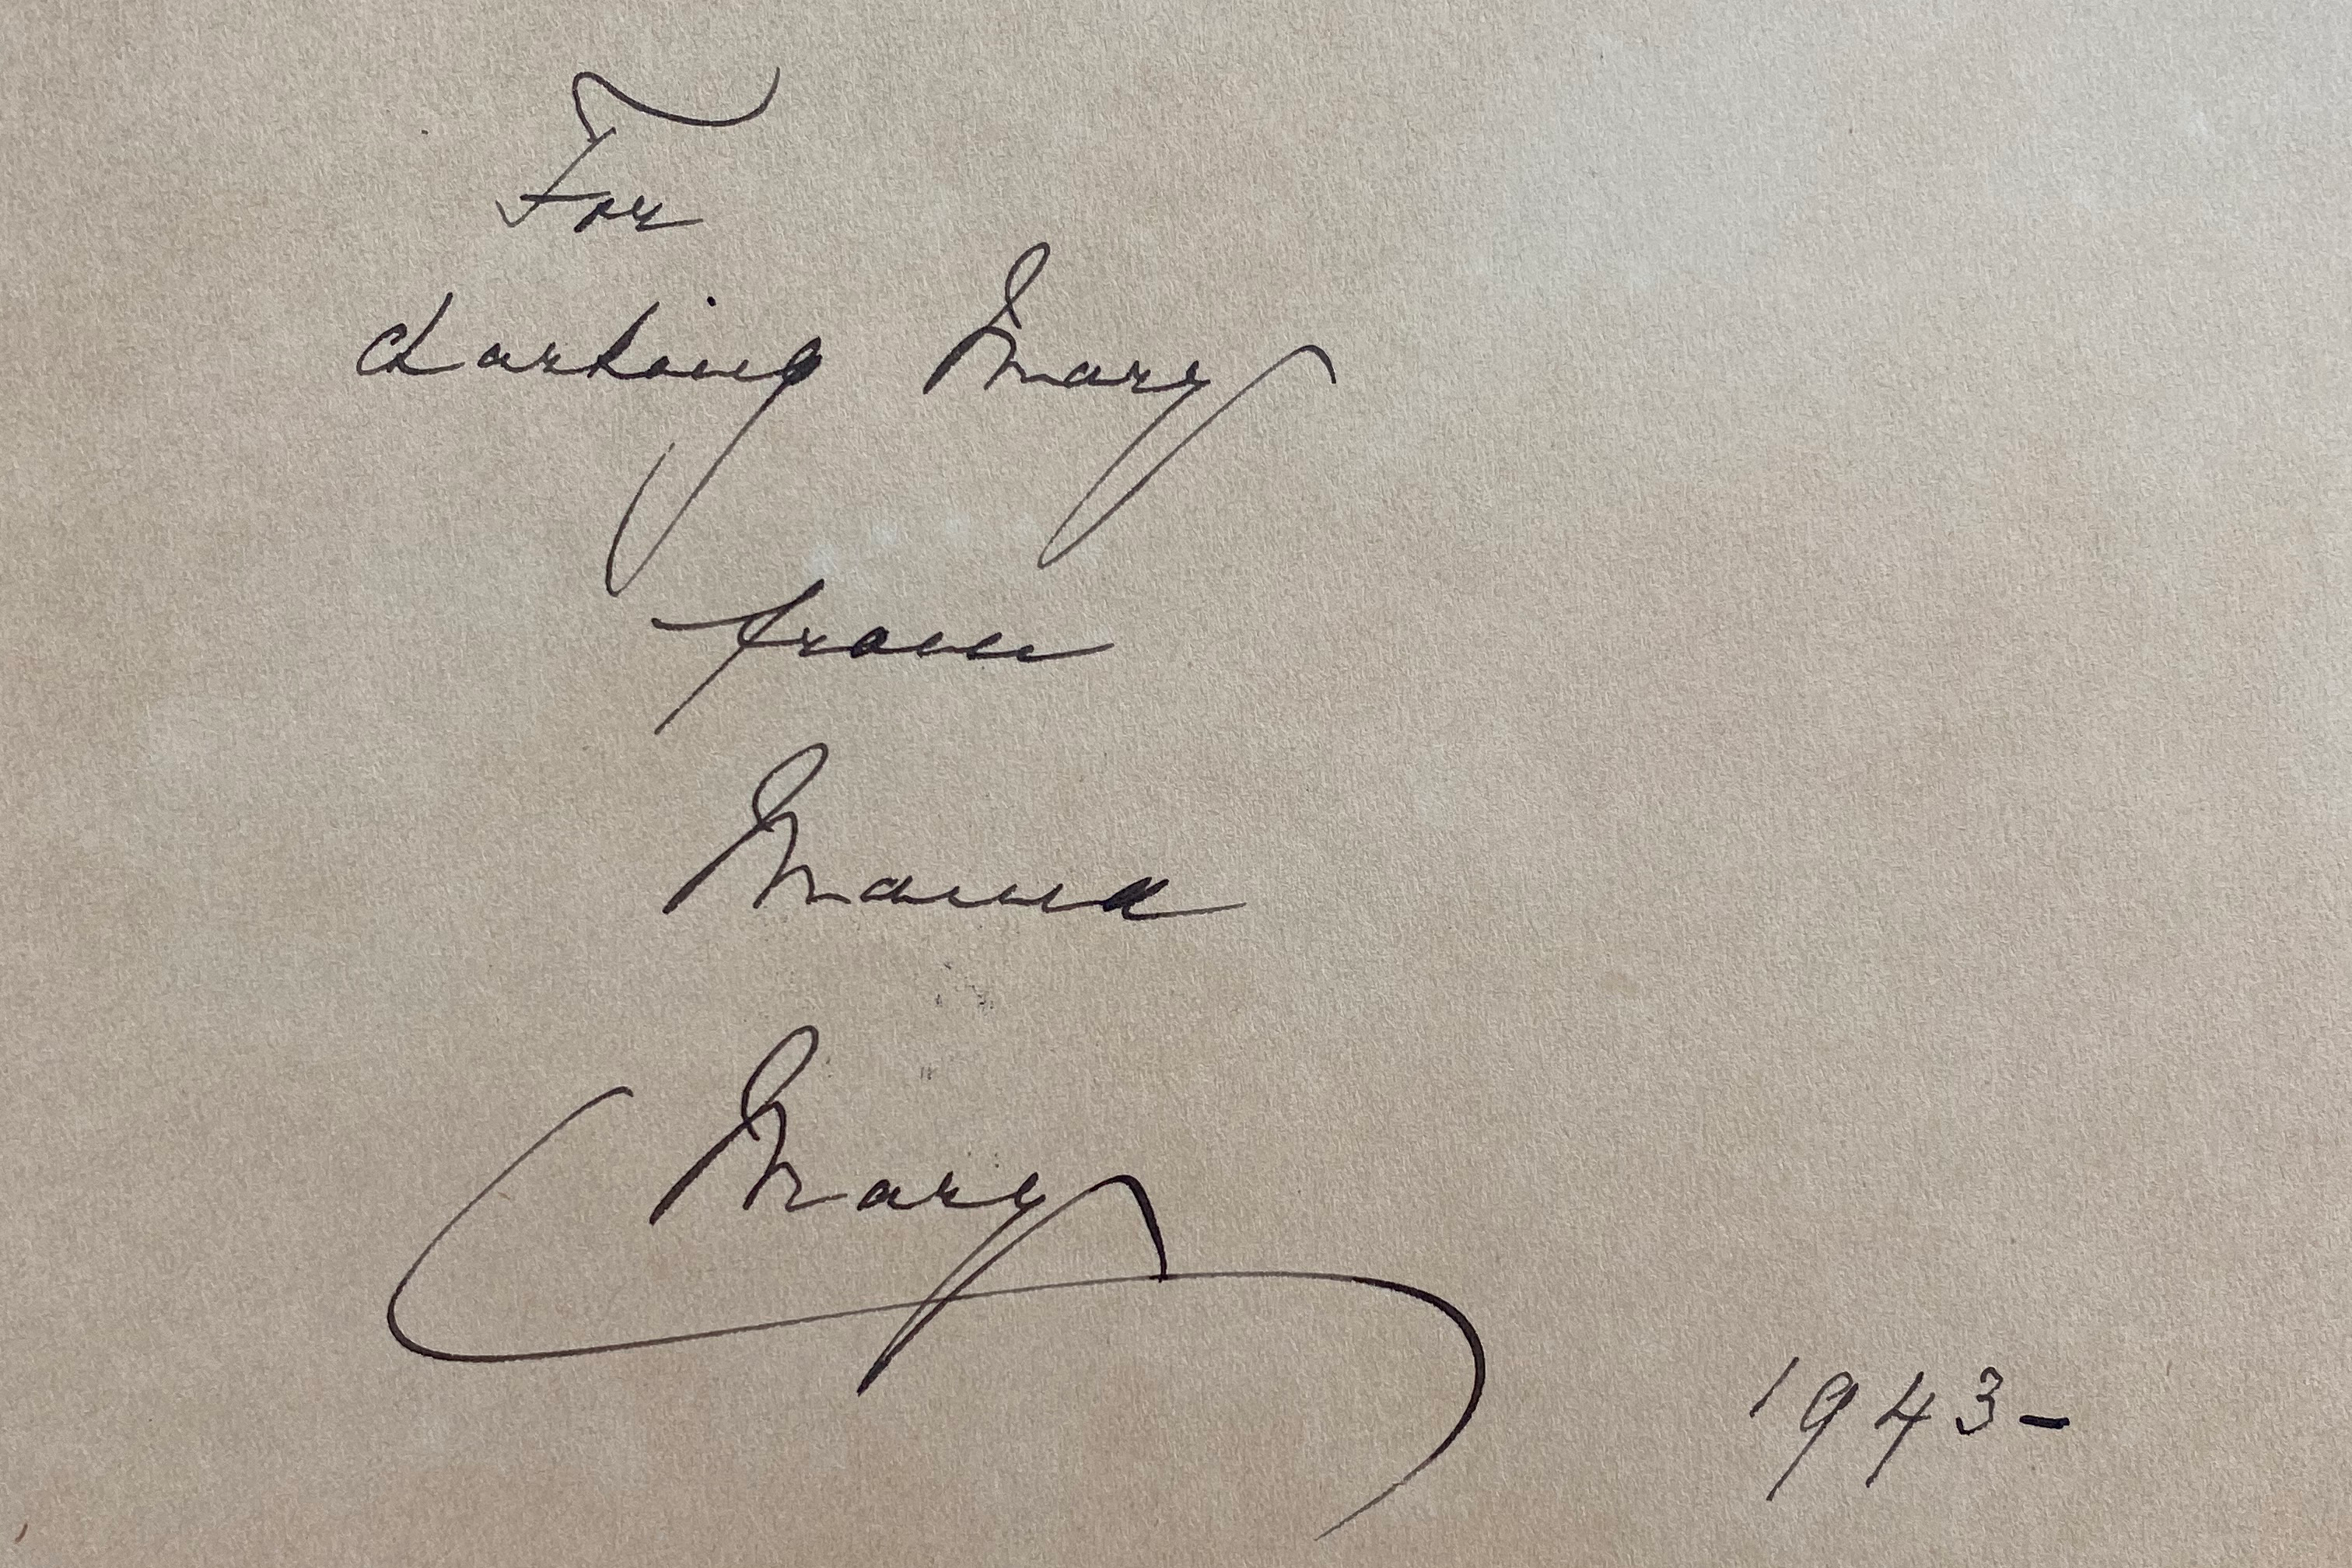 For
darling Mary
from
Mama
Mary
1943-